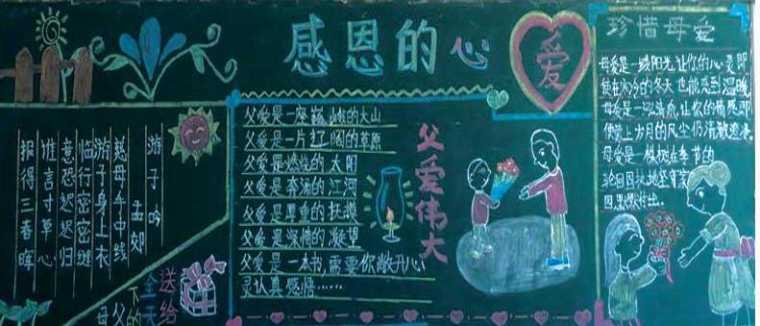 感恩的心
爱
游子吟
孟郊
慈母手中线
游子身上衣
临行密密缝
意恐迟迟归
谁言寸草心
报得三春晖
送给
全天
下的
父
母
父爱是一座巍峨的大山
父爱是一片广阔的草原
父爱是燃烧的太阳
父爱是奔流的江河
父爱是厚重的扶持
父爱是深情的凝望
父爱是一本书,需要你敞开心
灵认真感悟......
父爱伟大
珍惜母爱
母爱是一缕阳光,让你的心灵即
使在寒冷的冬天也能感到温暖
母爱是一泓清泉,让你的情感即
使蒙上岁月的风尘仍清澈
母爱是一棵树,季节的
轮回固执地坚守
付出。